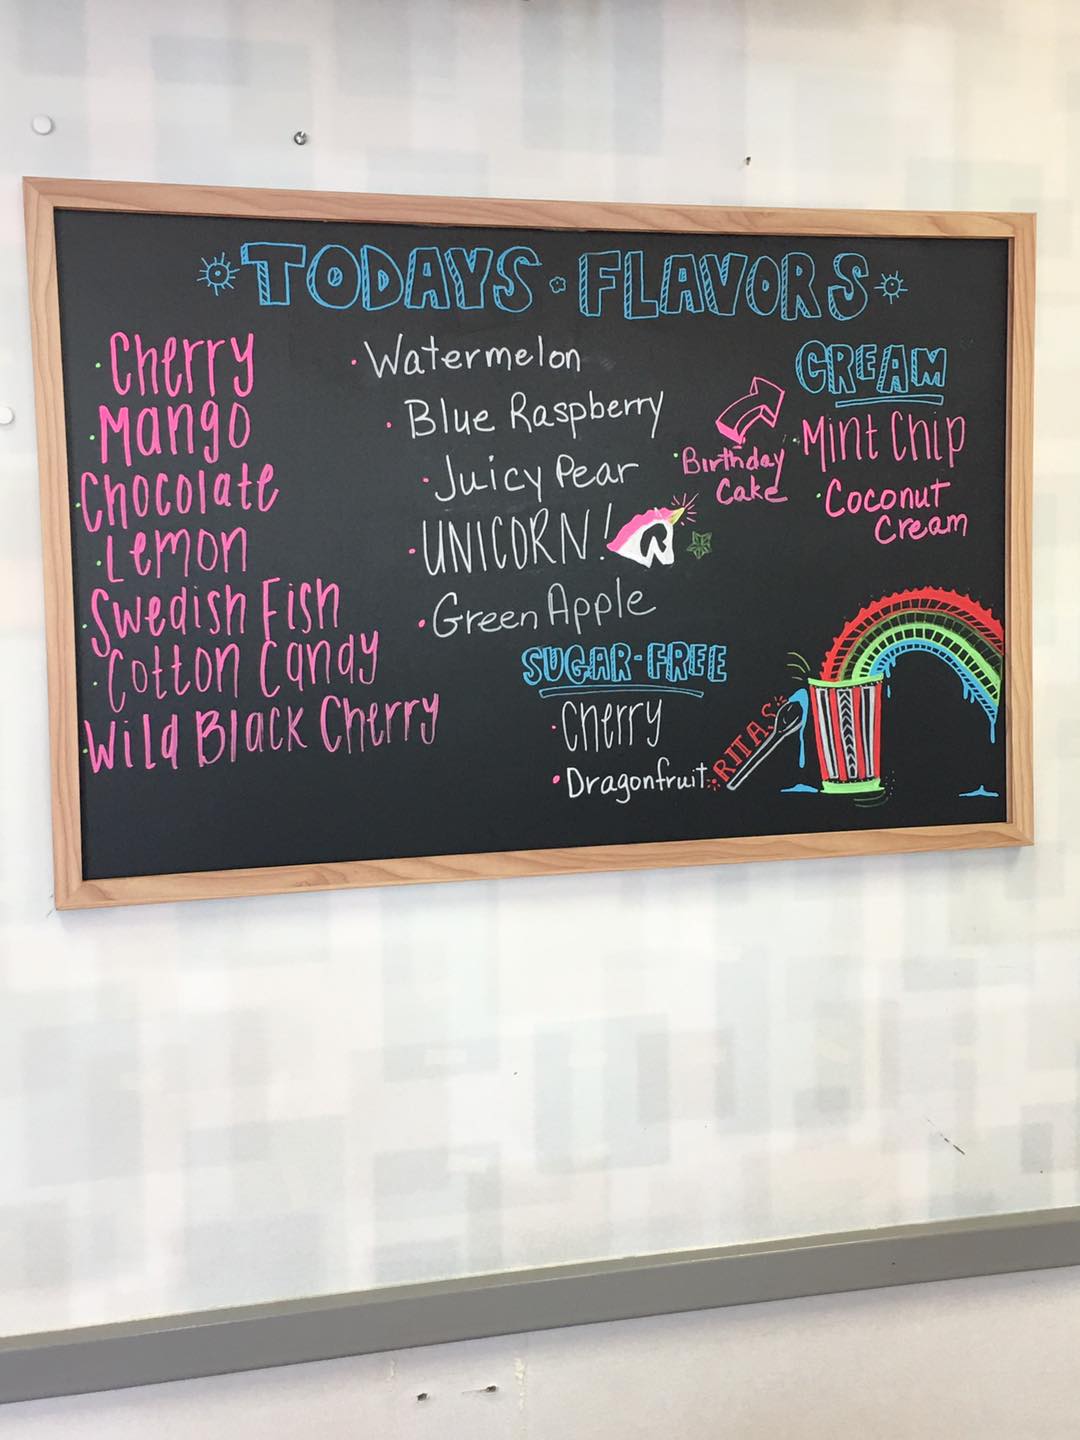 TODAYS FLAVORS
Cherry
Mango
Chocolate
Lemon
Swedish Fish
Cotton Candy
Wild Black Cherry
Watermelon
Blue Raspberry
Juicy Pear
UNICORN!
Green Apple
SUGAR-FREE
Cherry
Dragonfruit
CREAM
Mint Chip
Coconut
Cream
Birthday
Cake
RITAS